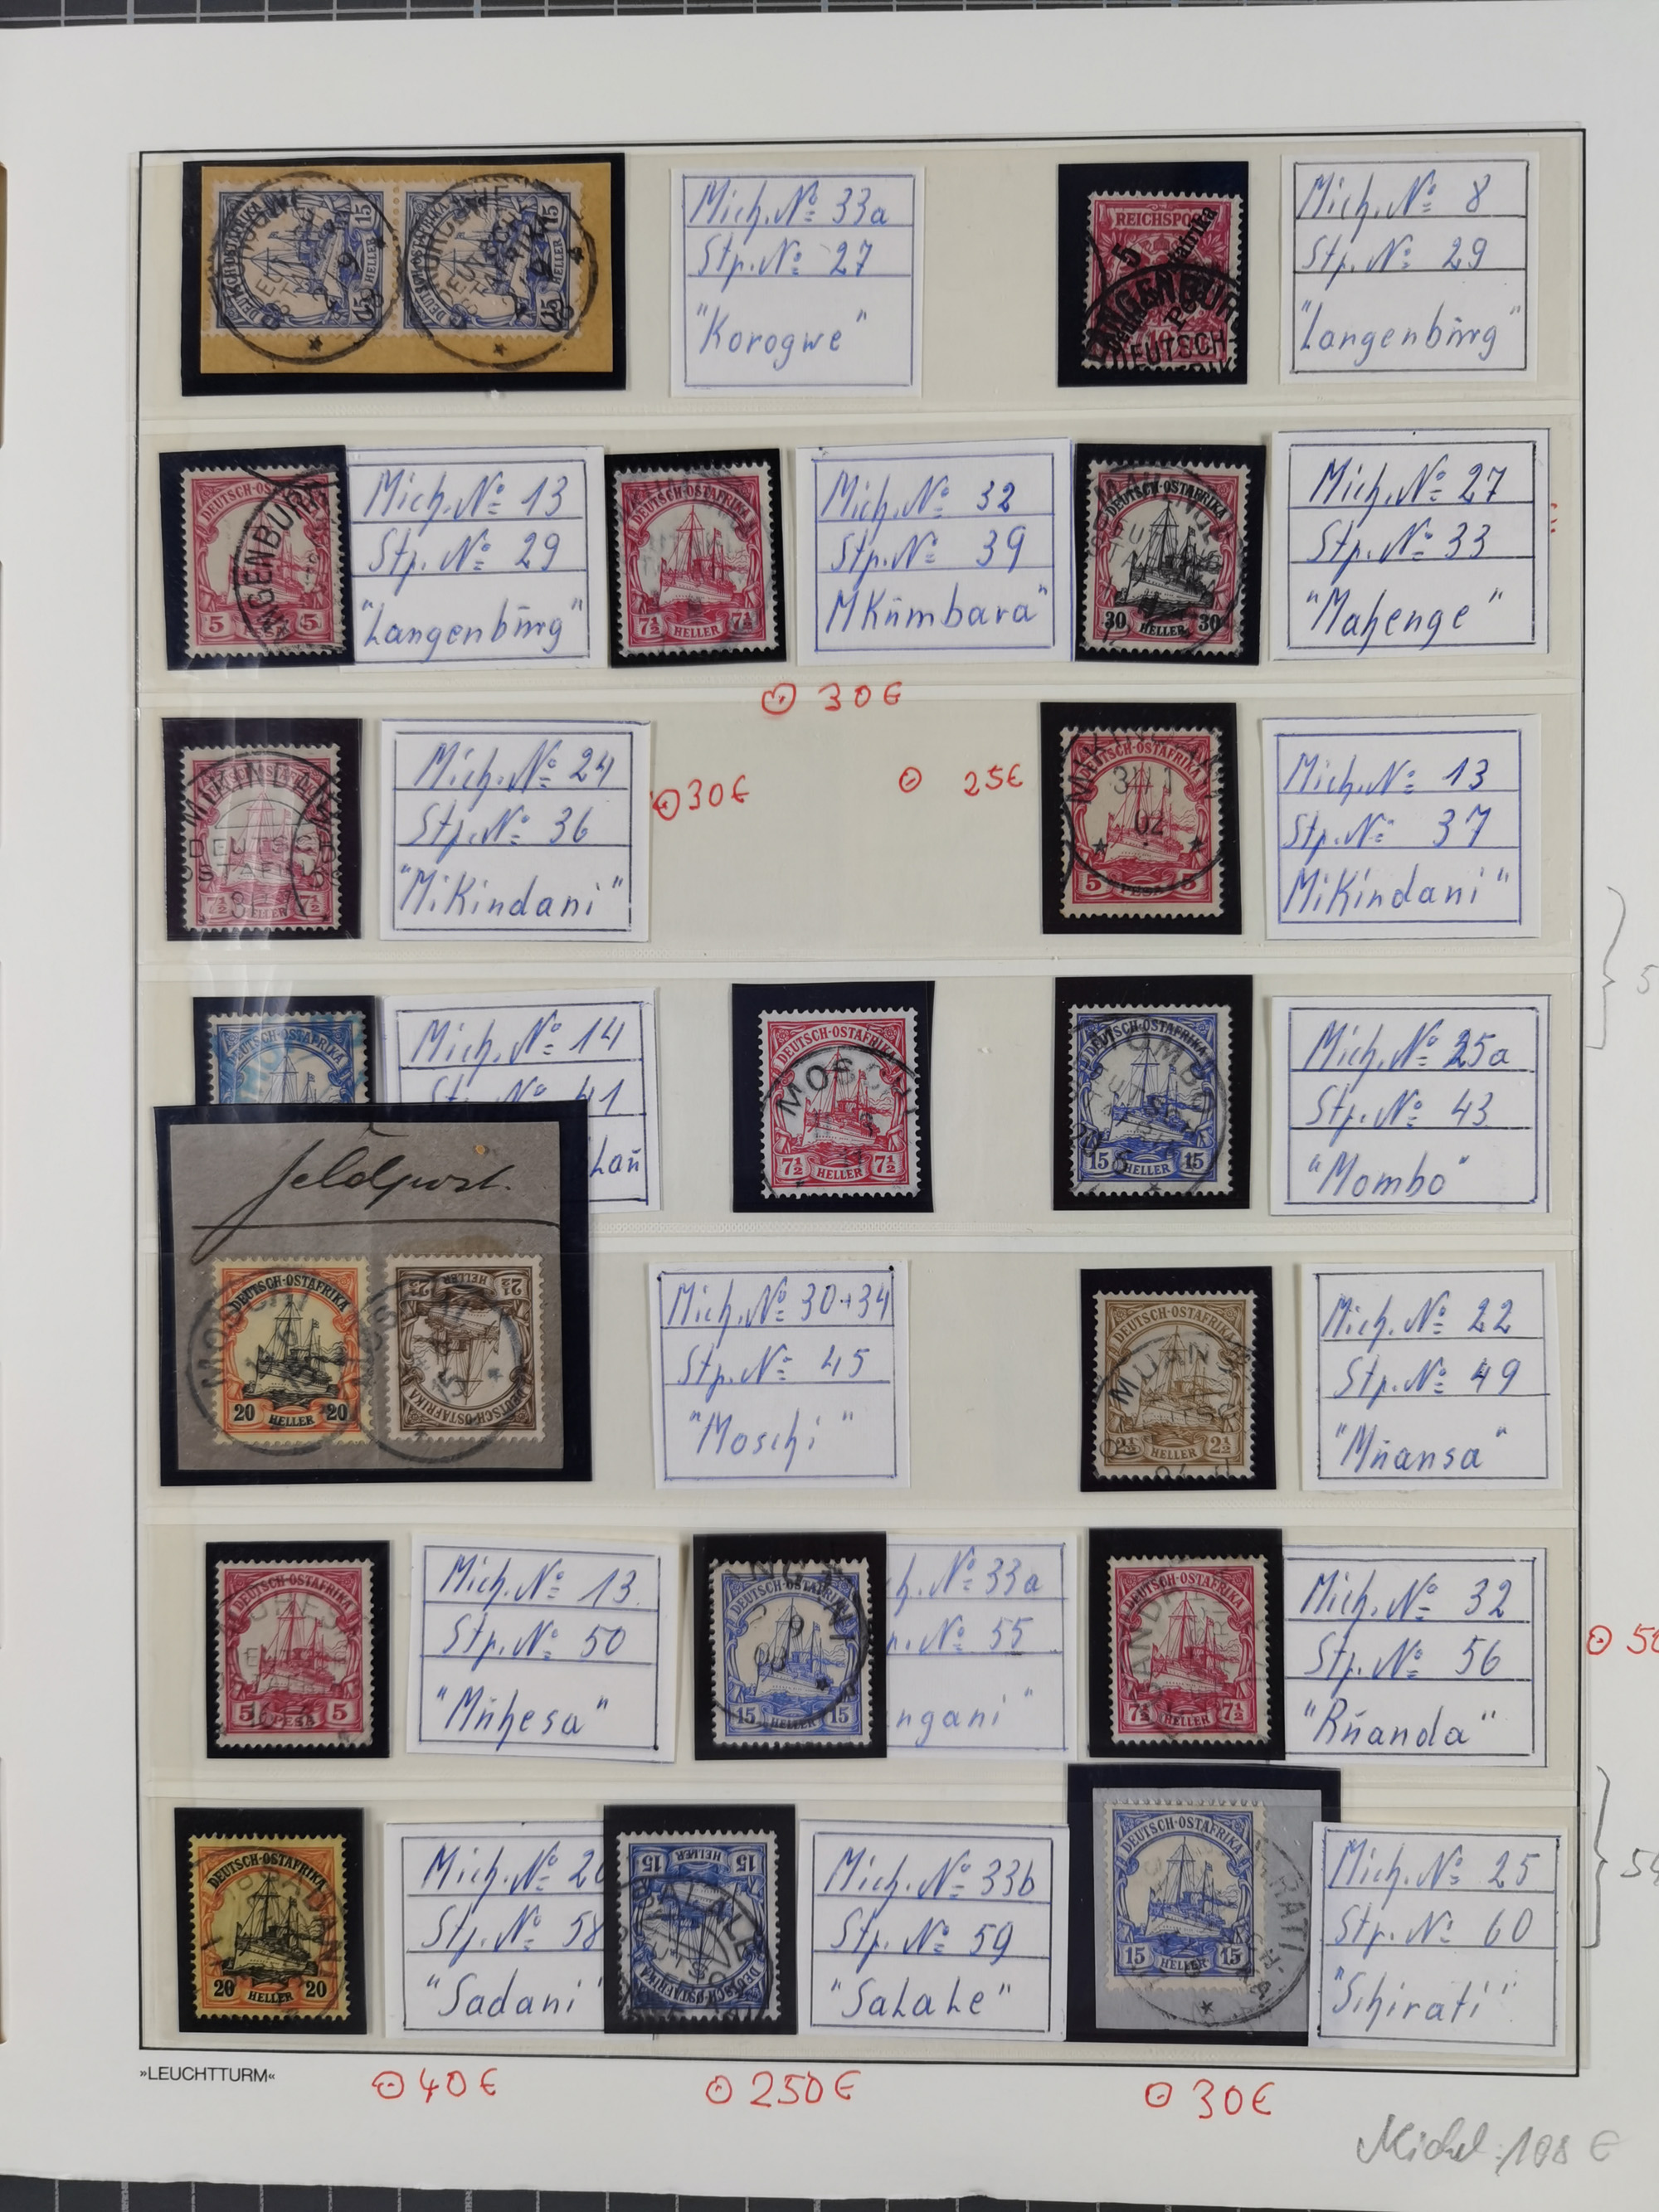 Mich. № 33a
Stp. № 27
"Korogwe"
REICHSPOST
Mich. № 8
Stp. № 29
"Langenbŭrg"
DEUTSCH-OSTAFRIKA
NGENBURG
5 5
Mich. № 13
Stp. № 29
"Langenbŭrg"
DEUTSCH-OSTAFRIKA
7½ HELLER 7½
Mich. № 32
Stp. № 39
MKŭmbara"
DEUTSCH-OSTAFRIKA
30 HELLER 30
Mich. № 27
Stp. № 33
"Mahenge"
30€
MIKINDANI
DEUTSCH
7½ HELLER 7½
Mich. № 24
Stp. № 36
"Mikindani"
30€
25€
DEUTSCH-OSTAFRIKA
5 PESA 5
Mich. № 13
Stp. № 37
Mikindani"
DEUTSCH-OSTAFRIKA
Mich. № 14
Stp. № 41
Laŭ
DEUTSCH-OSTAFRIKA
MOSCHI
7½ HELLER 7½
DEUTSCH-OSTAFRIKA
15 HELLER 15
Mich. № 25a
Stp. № 43
"Mombo"
Feldpost.
DEUTSCH-OSTAFRIKA
20 HELLER 20
DEUTSCH-OSTAFRIKA
2½ HELLER 2½
Mich. № 30+34
Stp. № 45
"Moschi"
DEUTSCH-OSTAFRIKA
MUANSA
2½ HELLER 2½
Mich. № 22
Stp. № 49
"Mŭansa"
DEUTSCH-OSTAFRIKA
5 PESA 5
Mich. № 13.
Stp. № 50
"Mŭhesa"
DEUTSCH-OSTAFRIKA
15 HELLER 15
h. № 33a
. № 55
ngani"
DEUTSCH-OSTAFRIKA
7½ HELLER 7½
Mich. № 32
Stp. № 56
"Rŭanda"
DEUTSCH-OSTAFRIKA
20 HELLER 20
Mich. № 2
Stp. № 58
"Sadani"
DEUTSCH-OSTAFRIKA
15 HELLER 15
Mich. № 33b
Stp. № 59
"SaLaLe"
DEUTSCH-OSTAFRIKA
15 HELLER 15
Mich. № 25
Stp. № 60
"Schirati"
»LEUCHTTURM«
40€
250€
30€
Michel: